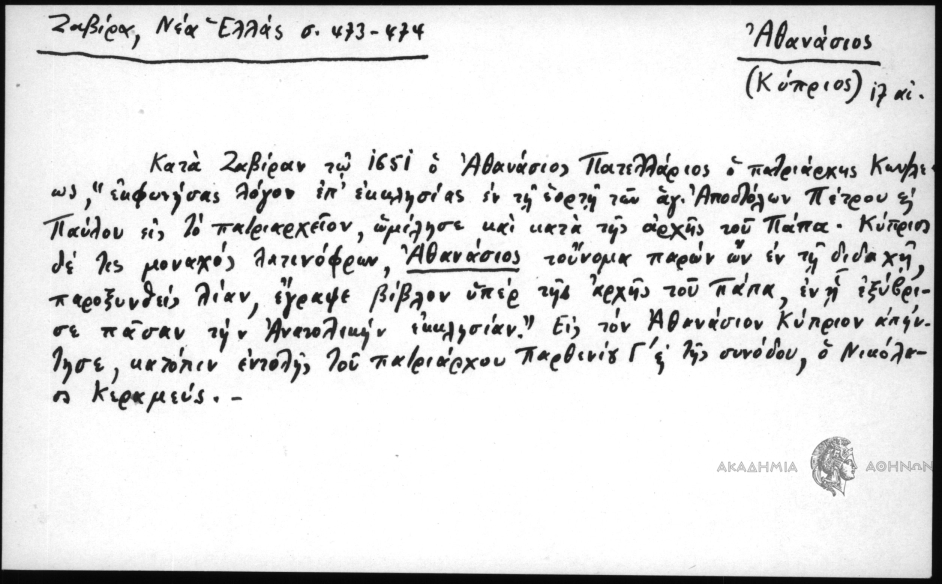 Ζαβίρα, Νέα Ἑλλάς σ. 473-474
Ἀθανάσιος
(Κύπριος) ιζ αἰ.
Κατὰ Ζαβίραν τῷ 1651 ὁ Ἀθανάσιος Πατελλάριος ὁ πατριάρχης Κων/λε-
ως, "ἐκφωνήσας λόγον ἐπ' ἐκκλησίας ἐν τῇ ἑορτῇ τῶν ἁγ. Ἀποστόλων Πέτρου ϗ
Παύλου εἰς τὸ πατριαρχεῖον, ὡμίλησε καὶ κατὰ τῆς ἀρχῆς τοῦ Πάπα. Κύπριος
δέ τις μοναχός λατινόφρων, Ἀθανάσιος τοὔνομα παρών ὤν ἐν τῇ διδαχῇ,
παροξυνθείς λίαν, ἔγραψε βίβλον ὑπέρ τῆς ἀρχῆς τοῦ Πάπα, ἐν ᾗ ἐξύβρι-
σε πᾶσαν τήν Ἀνατολικήν ἐκκλησίαν." Εἰς τόν Ἀθανάσιον Κύπριον ἀπήν-
τησε, κατόπιν ἐντολῆς τοῦ πατριάρχου Παρθενίου Γ' ϗ τῆς συνόδου, ὁ Νικόλα-
ος Κεραμεύς. –
ΑΚΑΔΗΜΙΑ ΑΘΗΝΩΝ